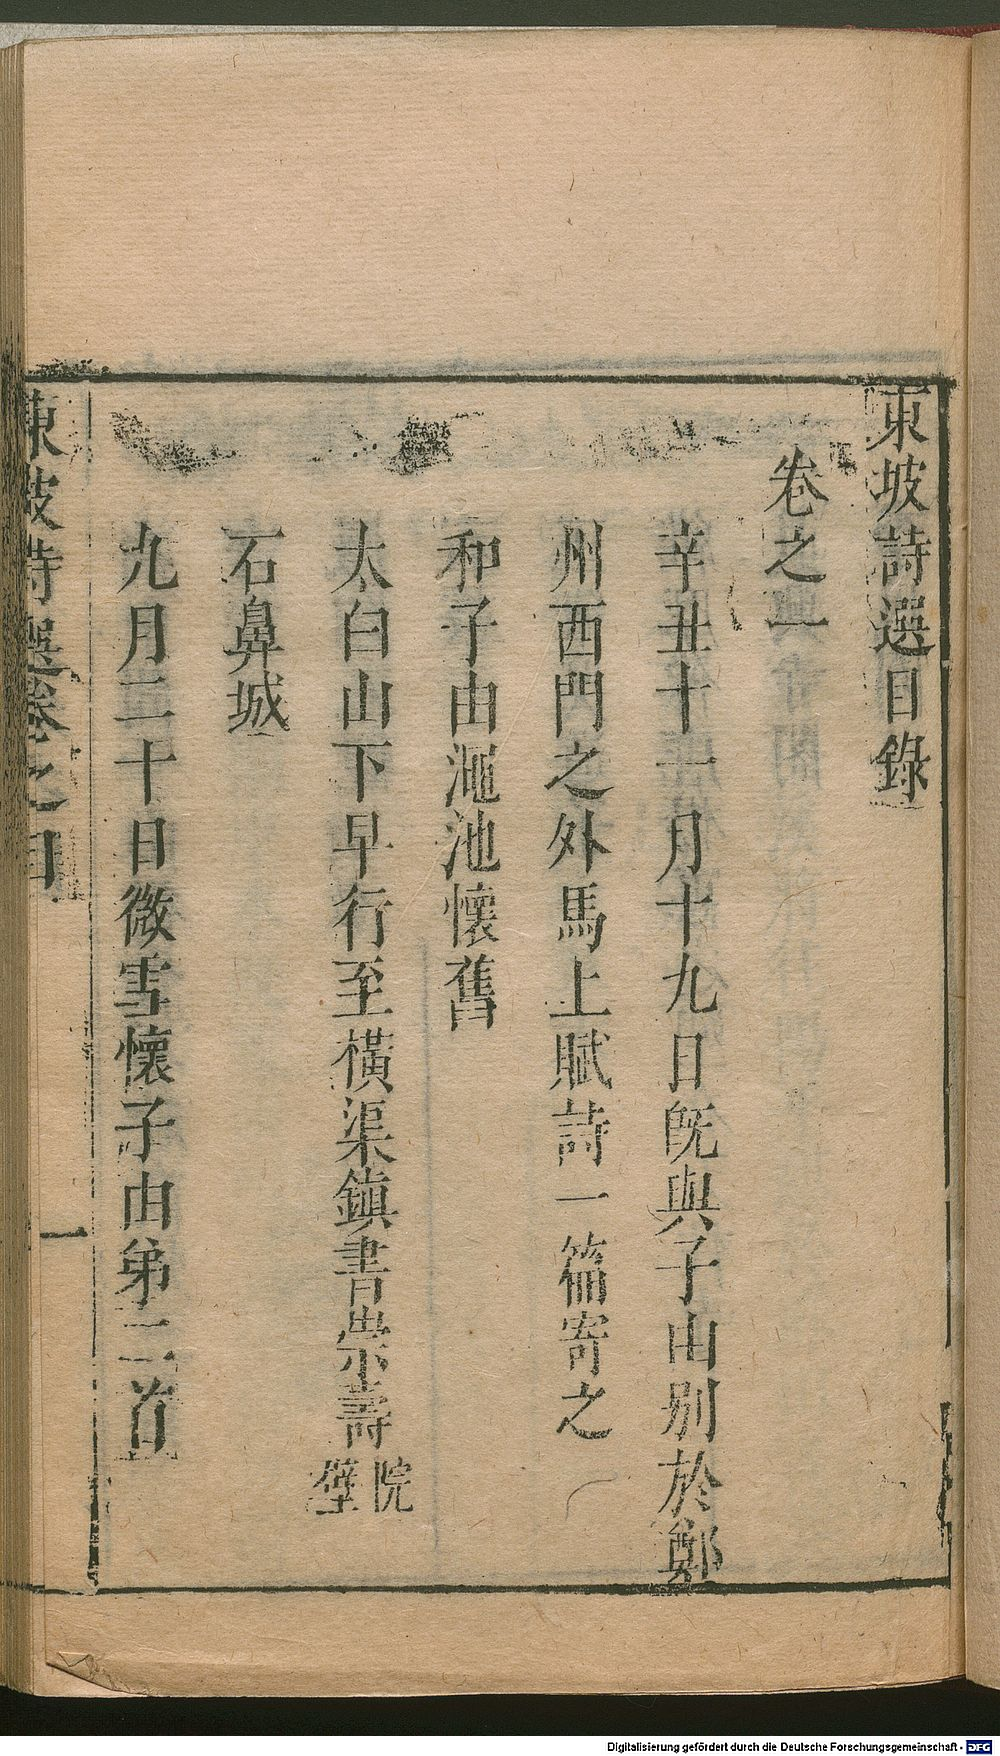 東坡詩選目錄
卷之一
辛丑十一月十九日旣與子由別於鄭
州西門之外馬上賦詩一篇寄之
和子由澠池懷舊
太白山下早行至橫渠鎮書崇壽院壁
石鼻城
九月二十日微雪懷子由弟二首
東坡詩選卷之目 一
Digitalisierung gefördert durch die Deutsche Forschungsgemeinschaft - DFG